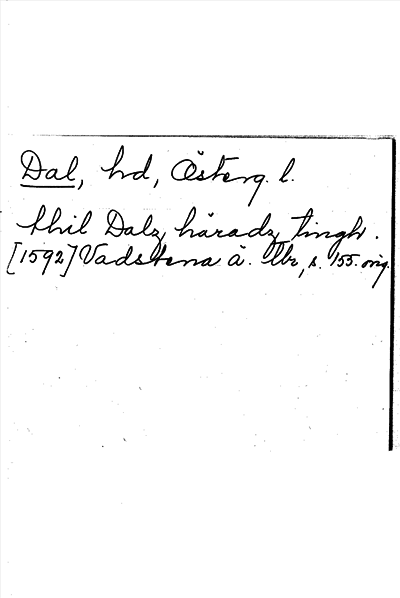 Dal, hd, Österg. l.
thil Dalz häradz tingh.
[1592] Vadstena ä. tlbr, s. 155. orig.